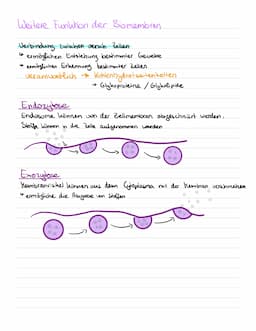 Weitere Funktion der Biomembran
Verbindung zwischen versch. Zellen
↳ ermöglichen Entstehung bestimmter Gewebe
↳ ermöglichen Erkennung bestimmter Zellen
verantwortlich → Kohlenhydratseitenketten
↳ Glykoproteine / Glykolipide
Endozytose
Endosome können von der Zellmembran abgeschnürt werden.
Stoffe können in die Zelle aufgenommen werden
Exozytose
Membranvesikel können aus dem Cytoplasma mit der Membran verschmelzen
↳ ermöglicht die Abgabe von Stoffen